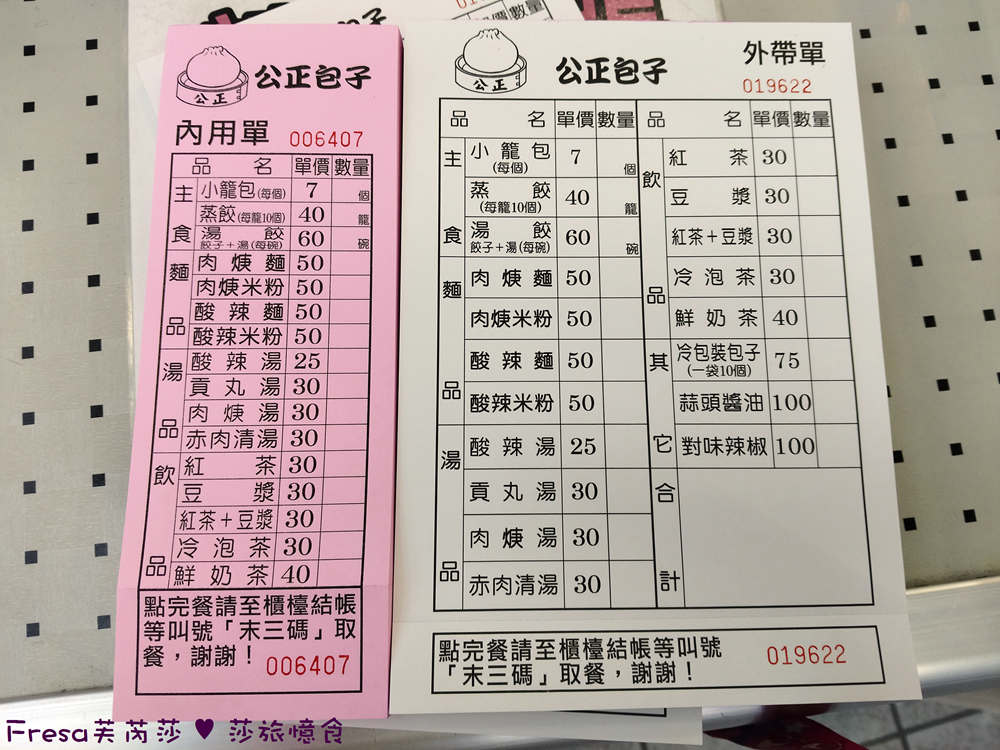 公正
公正包子
內用單 006407
品名 單價 數量
主食
小籠包(每個) 7 個
蒸餃(每籠10個) 40 籠
湯餃 餃子+湯(每碗) 60 碗
麵品
肉焿麵 50
肉焿米粉 50
酸辣麵 50
酸辣米粉 50
湯品
酸辣湯 25
貢丸湯 30
肉焿湯 30
赤肉清湯 30
飲品
紅茶 30
豆漿 30
紅茶+豆漿 30
冷泡茶 30
鮮奶茶 40
點完餐請至櫃檯結帳
等叫號「末三碼」取
餐,謝謝! 006407
公正
公正包子
外帶單
019622
品名 單價 數量 品名 單價 數量
主食
小籠包 7 個
(每個)
蒸餃 40 籠
(每籠10個)
湯餃 60 碗
餃子+湯(每碗)
麵品
肉焿麵 50
肉焿米粉 50
酸辣麵 50
酸辣米粉 50
湯品
酸辣湯 25
貢丸湯 30
肉焿湯 30
赤肉清湯 30
飲品
紅茶 30
豆漿 30
紅茶+豆漿 30
冷泡茶 30
鮮奶茶 40
其它
冷包裝包子 75
(一袋10個)
蒜頭醬油 100
對味辣椒 100
合計
點完餐請至櫃檯結帳等叫號
「末三碼」取餐,謝謝! 019622
Fresa芙芮莎 ♥ 莎旅憶食